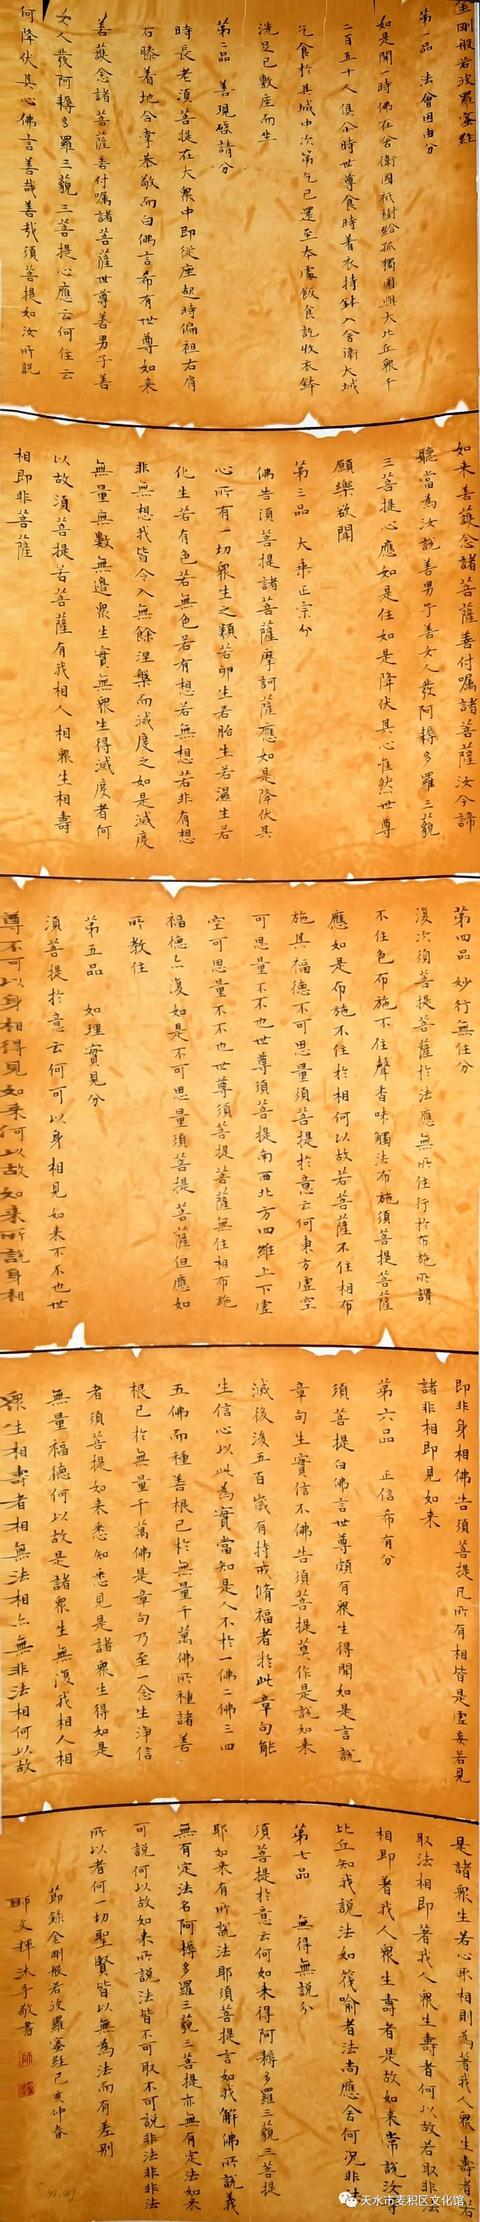 金剛般若波羅蜜經
第一品　法會因由分
如是聞一時佛在舍衛國祇樹給孤獨園與大比丘衆千
二百五十人俱尒時世尊食時着衣持鉢入舍衛大城
乞食於其城中次第乞已還至本處飯食訖收衣鉢
洗足已敷座而坐
第二品　善現啟請分
時長老須菩提在大衆中即從座起時偏袒右肩
右膝着地合掌恭敬而白佛言希有世尊如来
善護念諸菩薩善付囑諸菩薩世尊善男子善
女人發阿耨多羅三藐三菩提心應云何住云
何降伏其心佛言善哉善哉須菩提如汝所説
如来善護念諸菩薩善付囑諸菩薩汝今諦
聽當為汝説善男子善女人發阿耨多羅三藐
三菩提心應如是住如是降伏其心惟然世尊
願樂欲聞
第三品　大乘正宗分
佛告須菩提諸菩薩摩訶薩應如是降伏其
心所有一切衆生之類若卵生若胎生若濕生若
化生若有色若無色若有想若無想若非有想
非無想我皆令入無餘涅槃而滅度之如是滅度
無量無數無邊衆生實無衆生得滅度者何
以故須菩提若菩薩有我相人相衆生相壽
相即非菩薩
第四品　妙行無住分
復次須菩提菩薩於法應無所住行於布施所謂
不住色布施不住聲香味觸法布施須菩提菩薩
應如是布施不住於相何以故若菩薩不住相布
施其福德不可思量須菩提於意云何東方虚空
可思量不不也世尊須菩提南西北方四維上下虚
空可思量不不也世尊須菩提菩薩無住相布施
福德亦復如是不可思量須菩提菩薩但應如
所教住
第五品　如理實見分
須菩提於意云何可以身相見如来不不也世
尊不可以身相得見如来何以故如来所説身相
即非身相佛告須菩提凡所有相皆是虚妄若見
諸非相即見如来
第六品　正信希有分
須菩提白佛言世尊頗有衆生得聞如是言説
章句生實信不佛告須菩提莫作是説如来
滅後後五百嵗有持戒脩福者於此章句能
生信心以此為實當知是人不於一佛二佛三四
五佛而種善根已於無量千萬佛所種諸善
根已於無量千萬佛是章句乃至一念生浄信
者須菩提如来悉知悉見是諸衆生得如是
無量福德何以故是諸衆生無復我相人相
衆生相壽者相無法相亦無非法相何以故
是諸衆生若心取相則為著我人衆生壽者若
取法相即著我人衆生壽者何以故若取非法
相即著我人衆生壽者是故如来常説汝等
比丘知我説法如筏喻者法尚應舍何况非法
第七品　無得無説分
須菩提於意云何如来得阿耨多羅三藐三菩提
耶如来有所説法耶須菩提言如我解佛所説義
無有定法名阿耨多羅三藐三菩提亦無有定法如来
可説何以故如来所説法皆不可取不可説非法非非法
所以者何一切聖賢皆以無為法而有差别
節録金剛般若波羅蜜經己亥仲春
師文輝沐手敬書
天水市麦积区文化馆